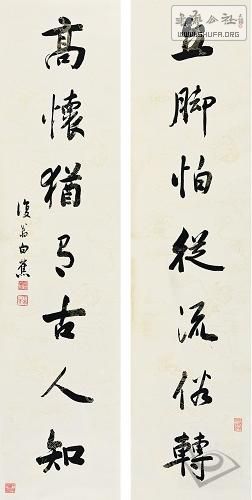 立脚怕從流俗轉
高懷猶有古人知
復翁白蕉
WWW.SHUFA.ORG